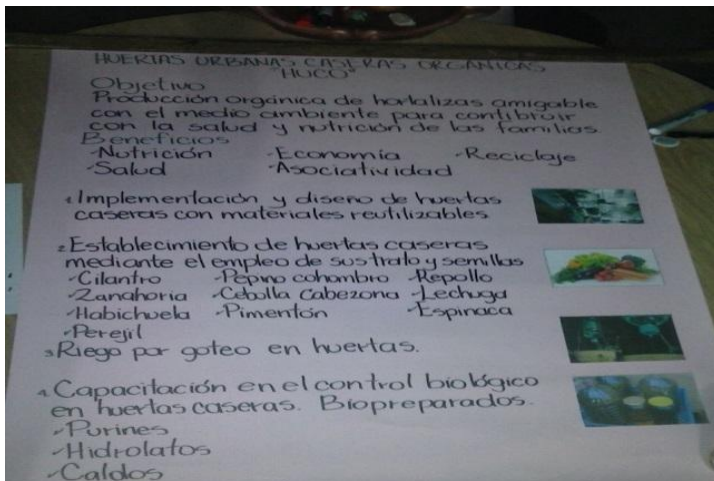 HUERTAS URBANAS CASERAS ORGANICAS
"HUCO"
Objetivo
Producción orgánica de hortalizas amigable
con el medio ambiente para contibruir
con la salud y nutrición de las familias.
Beneficios
-Nutrición -Economía -Reciclaje
-Salud -Asociatividad
1. Implementación y diseño de huertas
caseras con materiales reutilizables
2. Establecimiento de huertas caseras
mediante el empleo de sustrato y semillas
-Cilantro -Pepino cohombro -Repollo
-Zanahoria -Cebolla Cabezona -Lechuga
-Habichuela -Pimentón -Espinaca
-Perejil
3. Riego por goteo en huertas.
4. Capacitación en el control biológico
en huertas caseras. Biopreparados.
-Purines
-Hidrolatos
-Caldos